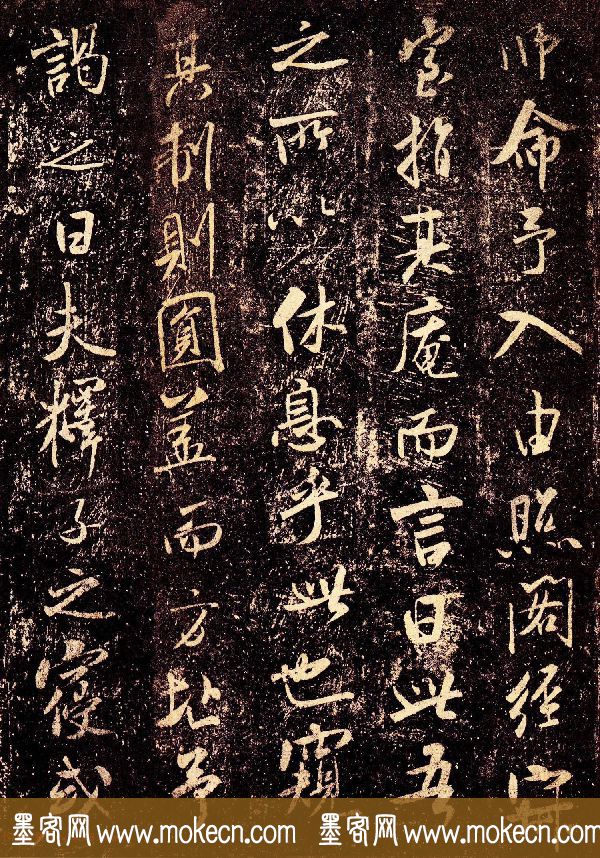 師命予入由照閣經寂
室指其庵而言曰此吾
之所以休息乎此也窺
其制則圓蓋而方址予
謁之曰夫釋子之寢或
墨客网 www.mokecn.com 墨客网 www.mokecn.com